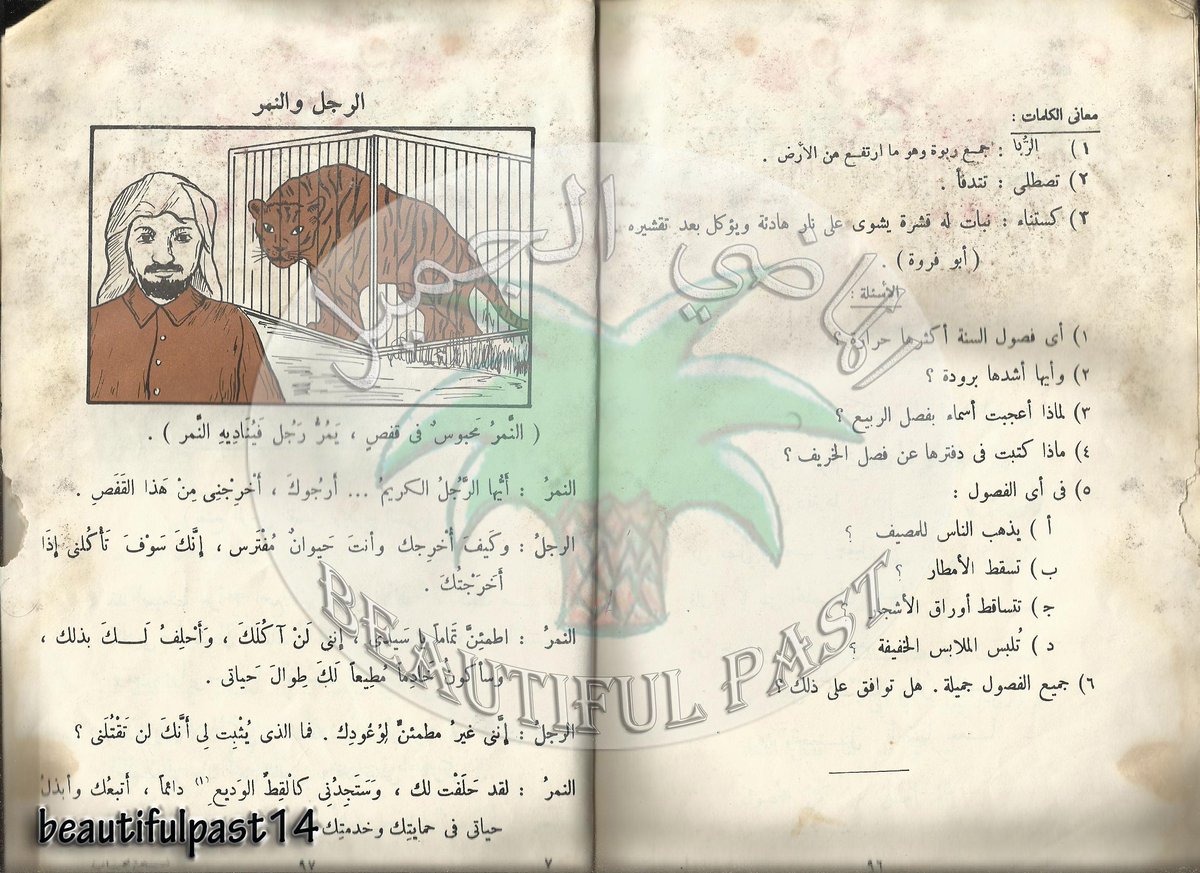 معانى الكلمات :
١) الرُّبا : جمع ربوة وهو ما ارتفع من الأرض .
٢) تصطلى : تتدفأ .
٣) كستناء : نبات له قشرة يشوى على نار هادئة ويؤكل بعد تقشيره
( أبو فروة ) .
الأسئلة :
١) أى فصول السنة أكثرها حرارة ؟
٢) وأيها أشدها برودة ؟
٣) لماذا أعجبت أسماء بفصل الربيع ؟
٤) ماذا كتبت فى دفترها عن فصل الخريف ؟
٥) فى أى الفصول :
أ ) يذهب الناس للمصيف ؟
ب) تسقط الأمطار ؟
ج) تتساقط أوراق الأشجار ؟
د ) تُلبس الملابس الخفيفة ؟
٦) جميع الفصول جميلة . هل توافق على ذلك ؟
٩٦
الرجل والنمر
( النَّمرُ مَحبوسٌ فى قفصٍ ، يَمُرُّ رَجُل فَيُنَادِيهِ النَّمر ) .
النمرُ : أَيُّها الرَّجُلُ الكريمُ ... أرجُوكَ ، أخْرِجْنِى مِنْ هَذا القَفَصِ .
الرجلُ : وكَيفَ أُخْرِجك وأنتَ حَيوانٌ مُفْتَرس ، إنَّكَ سَوْفَ تَأكُلنى إذَا
أَخرَجْتُكَ .
النمرُ : اطمئِنَّ تمَاماً يا سَيدى ، إنى لَنْ آكُلَكَ ، وَأَحْلِفُ لَكَ بذلك ،
وسأكونُ خَادِماً مُطِيعاً لَكَ طِوالَ حَياتى .
الرجلُ : إنَّنى غيرُ مطمئنٌّ لِوُعُودِك . فما الذى يُثْبِت لى أنَّكَ لن تَقْتُلَنى ؟
النمرُ : لقد حَلَفْت لك ، وَسَتَجِدُنِى كالْقِطِّ الوَديعِ (١) دائماً ، أتبعُك وأبذلُ
حياتى فى حمايتِك وخدمتِك
٩٧
٧
الماضي الجميل
BEAUTIFUL PAST
beautifulpast14